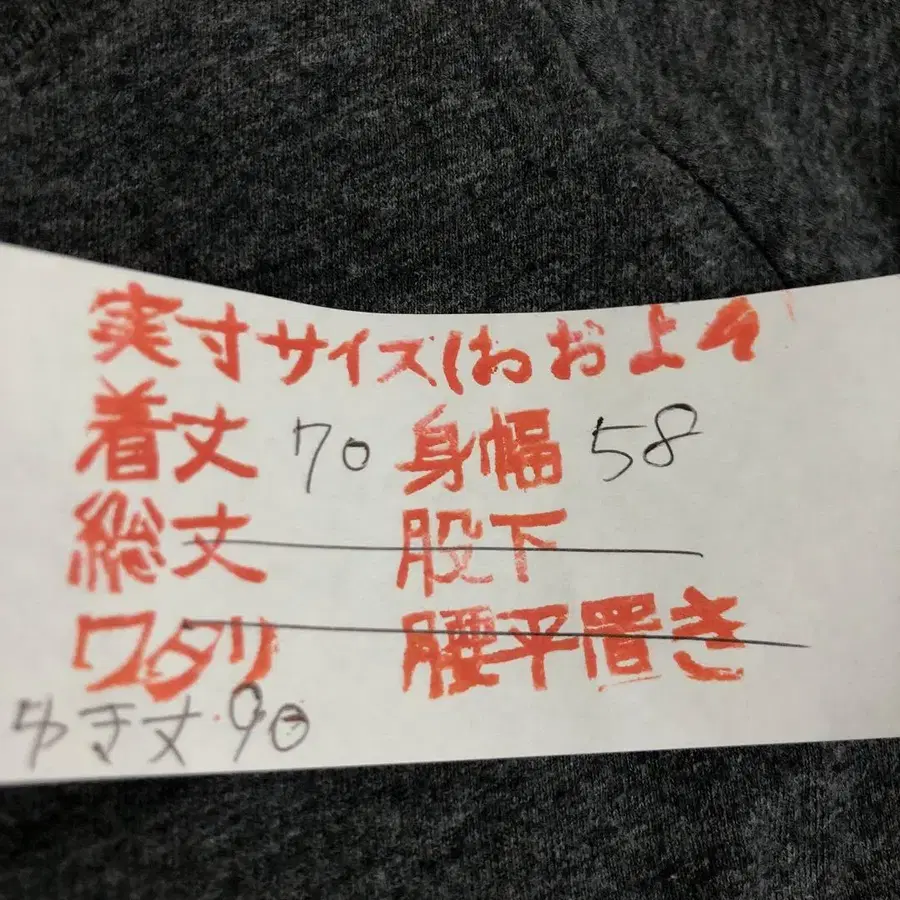 実寸サイズ(おおよそ
着丈 70 身幅 58
総丈 股下
ワタリ 腰平置き
ゆき丈 90